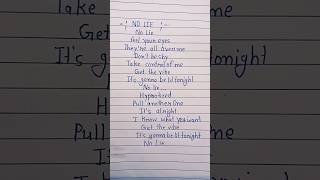 NO LIE
No Lie
Gyal your eyes
They're all awesome
Don't be shy
Take control of me
Get the vibe
It's gonna be lit tonight
No lie...
Hypnotized
Pull another one
It's alright
I know what you want
Get the vibe
It's gonna be lit tonight
No Lie